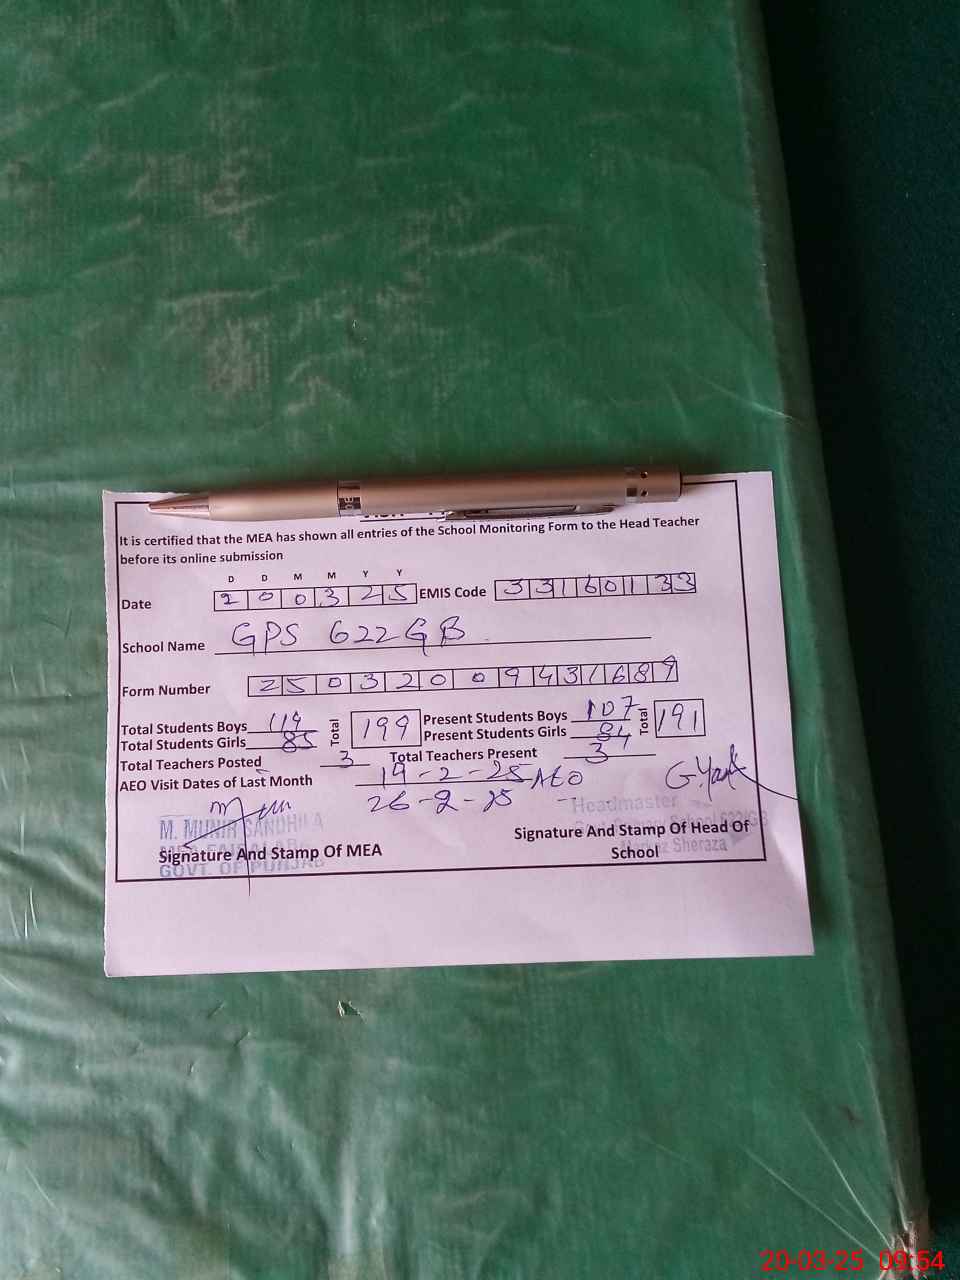 It is certified that the MEA has shown all entries of the School Monitoring Form to the Head Teacher
before its online submission
D D M M Y Y
Date 200325 EMIS Code 33160133
School Name GPS 622 GB
Form Number 25032009431689
Total Students Boys 114 Total 199 Present Students Boys 107 Total 191
Total Students Girls 85 Present Students Girls 84
Total Teachers Posted 3 Total Teachers Present 3
AEO Visit Dates of Last Month 19-2-25 AEO
26-2-25
M. MUNIR SANDHILA
Headmaster
Signature And Stamp Of MEA
GOVT. OF PUNJAB
Signature And Stamp Of Head Of
School
Markaz Sheraza
20-03-25 09:54